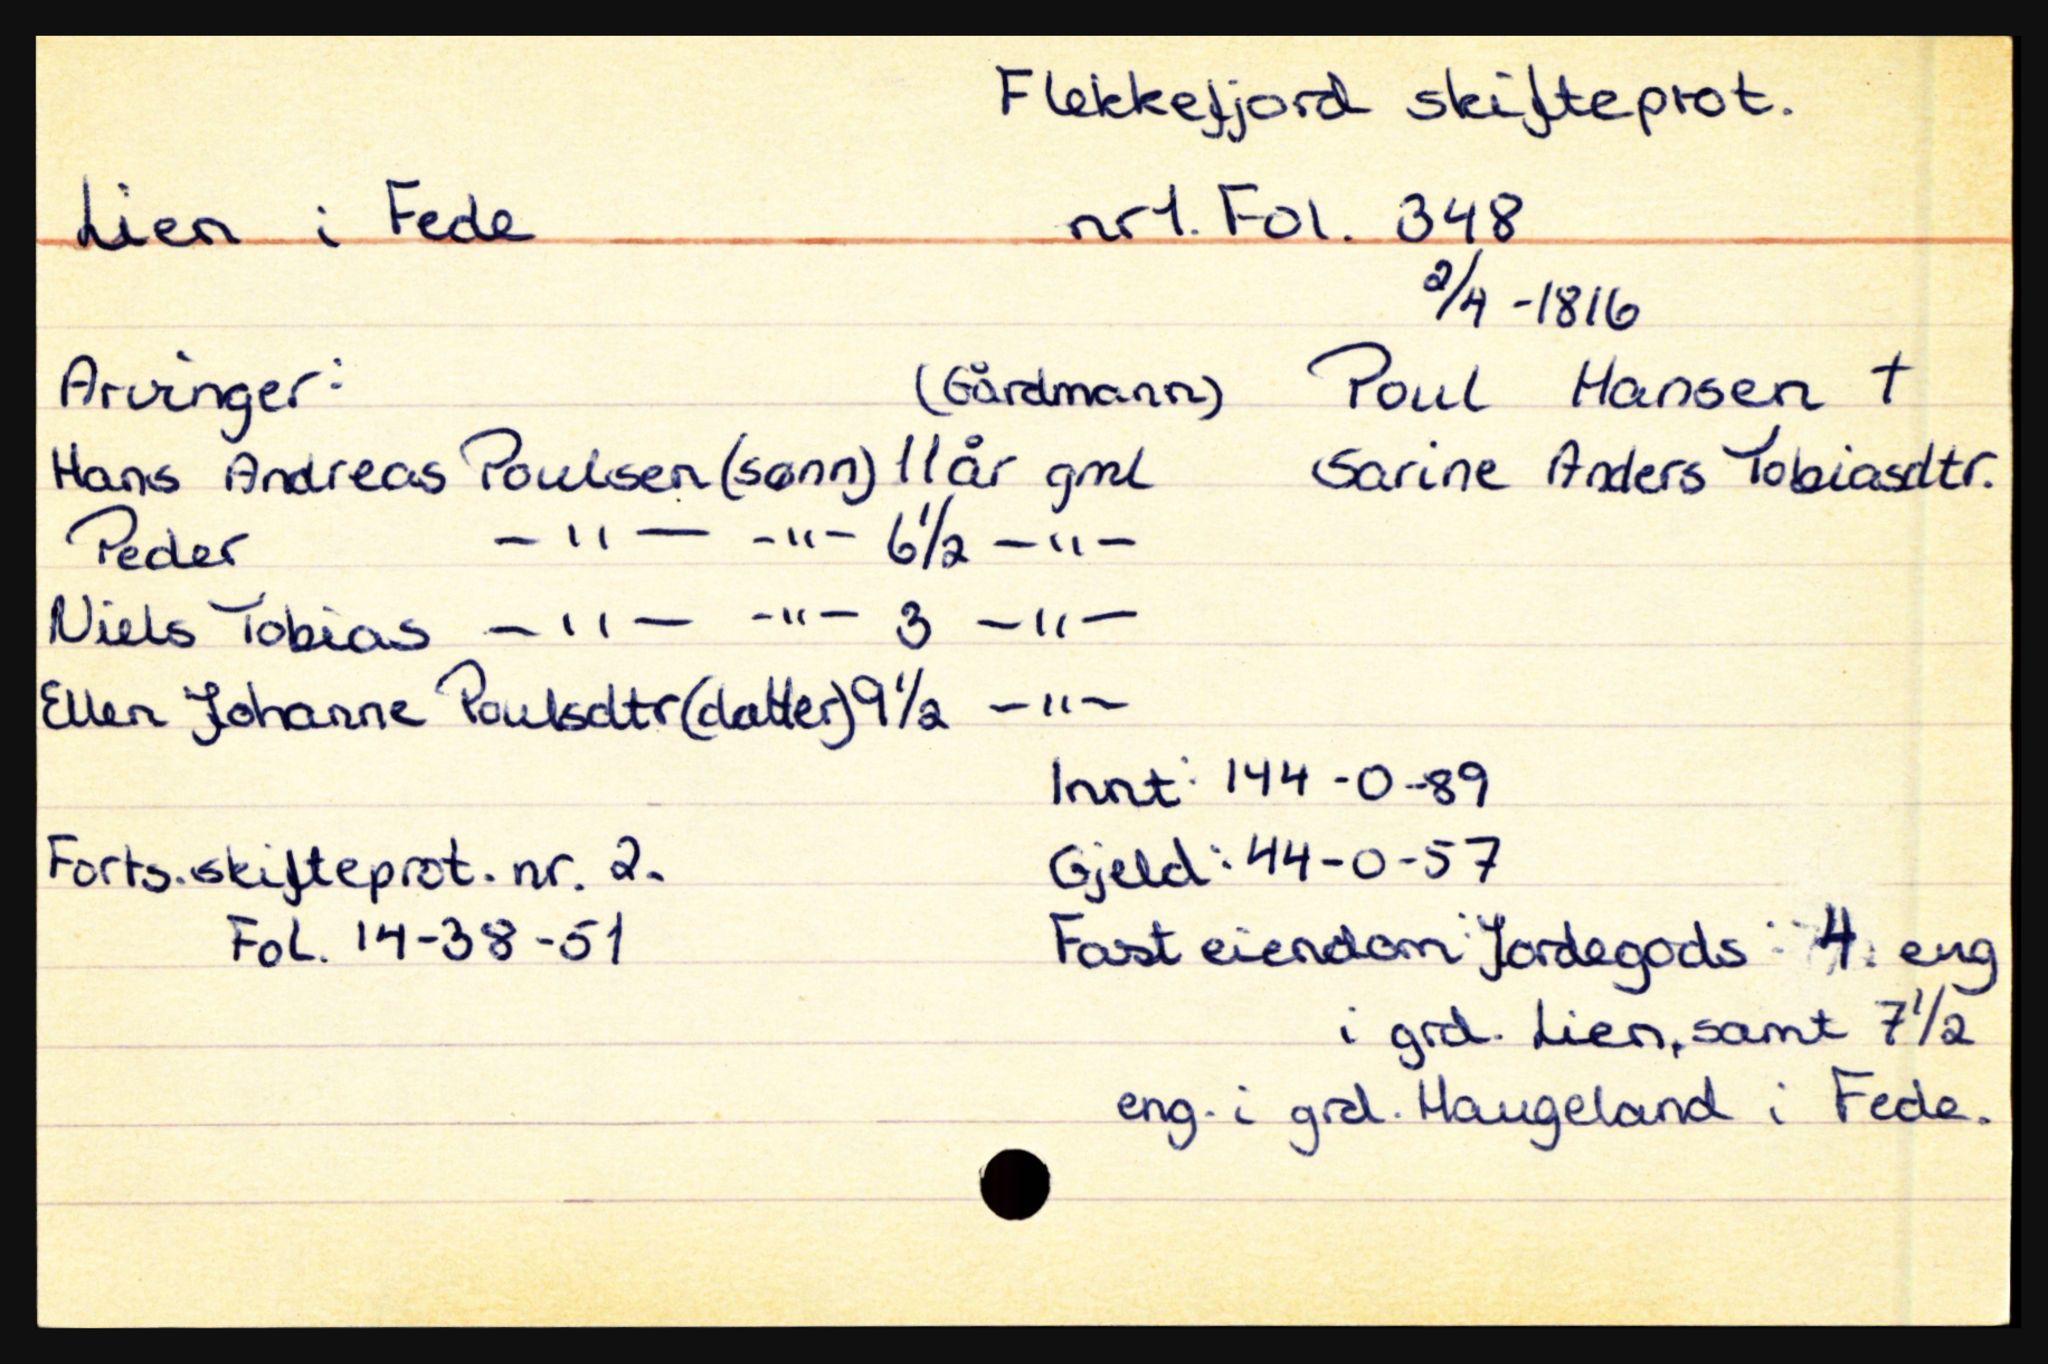 Flekkefjord skifteprot.
Lien i Fede nr 1. Fol. 348
2/4 -1816
Arvinger: (Gårdmann) Poul Hansen †
Hans Andreas Poulsen (sønn) 11 år gml Sarine Anders Tobiasdtr.
Peder -"- -"- 6 1/2 -"-
Niels Tobias -"- -"- 3 -"-
Ellen Johanne Poulsdtr (datter) 9 1/2 -"-
Innt: 144 -0 -89
Forts. skifteprot. nr. 2. Gjeld: 44-0-57
Fol. 14-38-51 Fast eiendom: Jordegods: 4. eng
i grd. Lien, samt 7 1/2
eng. i grd. Haugeland i Fede.